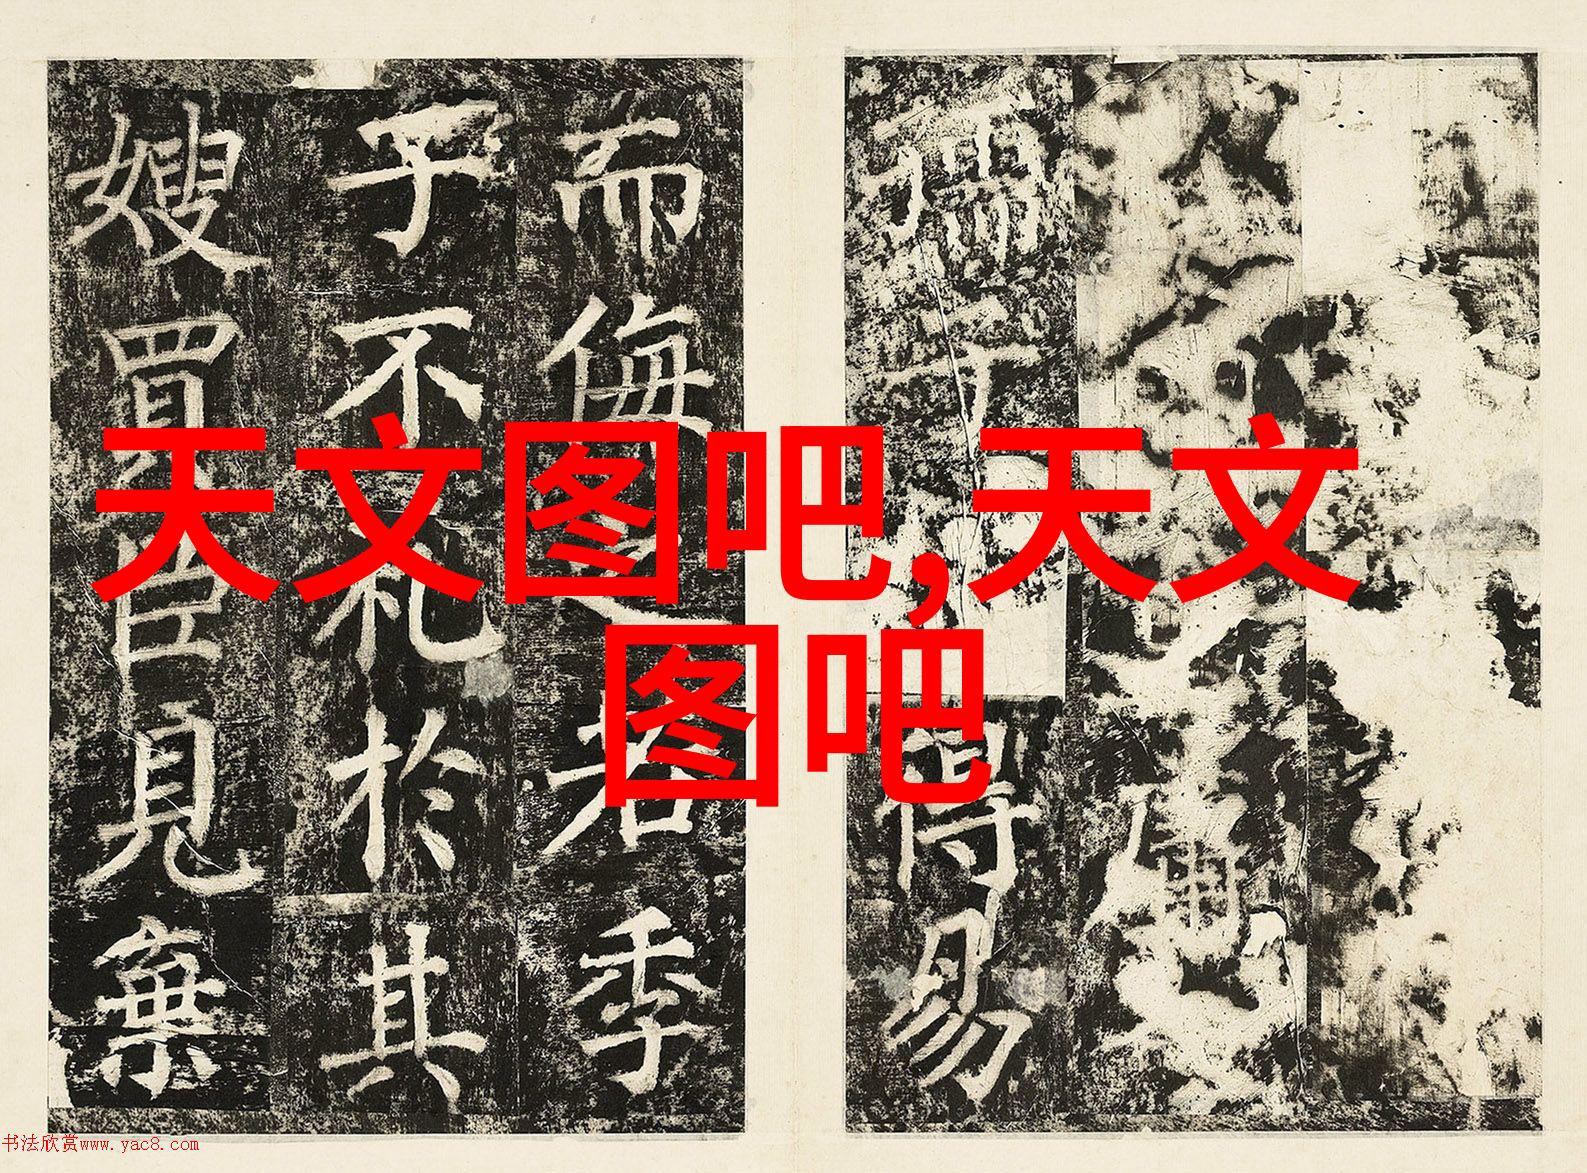 天文图吧,天文
图吧
孺得易
而侮若季
子不礼於其
嫂買臣見棄
书法欣赏www.yac8.com